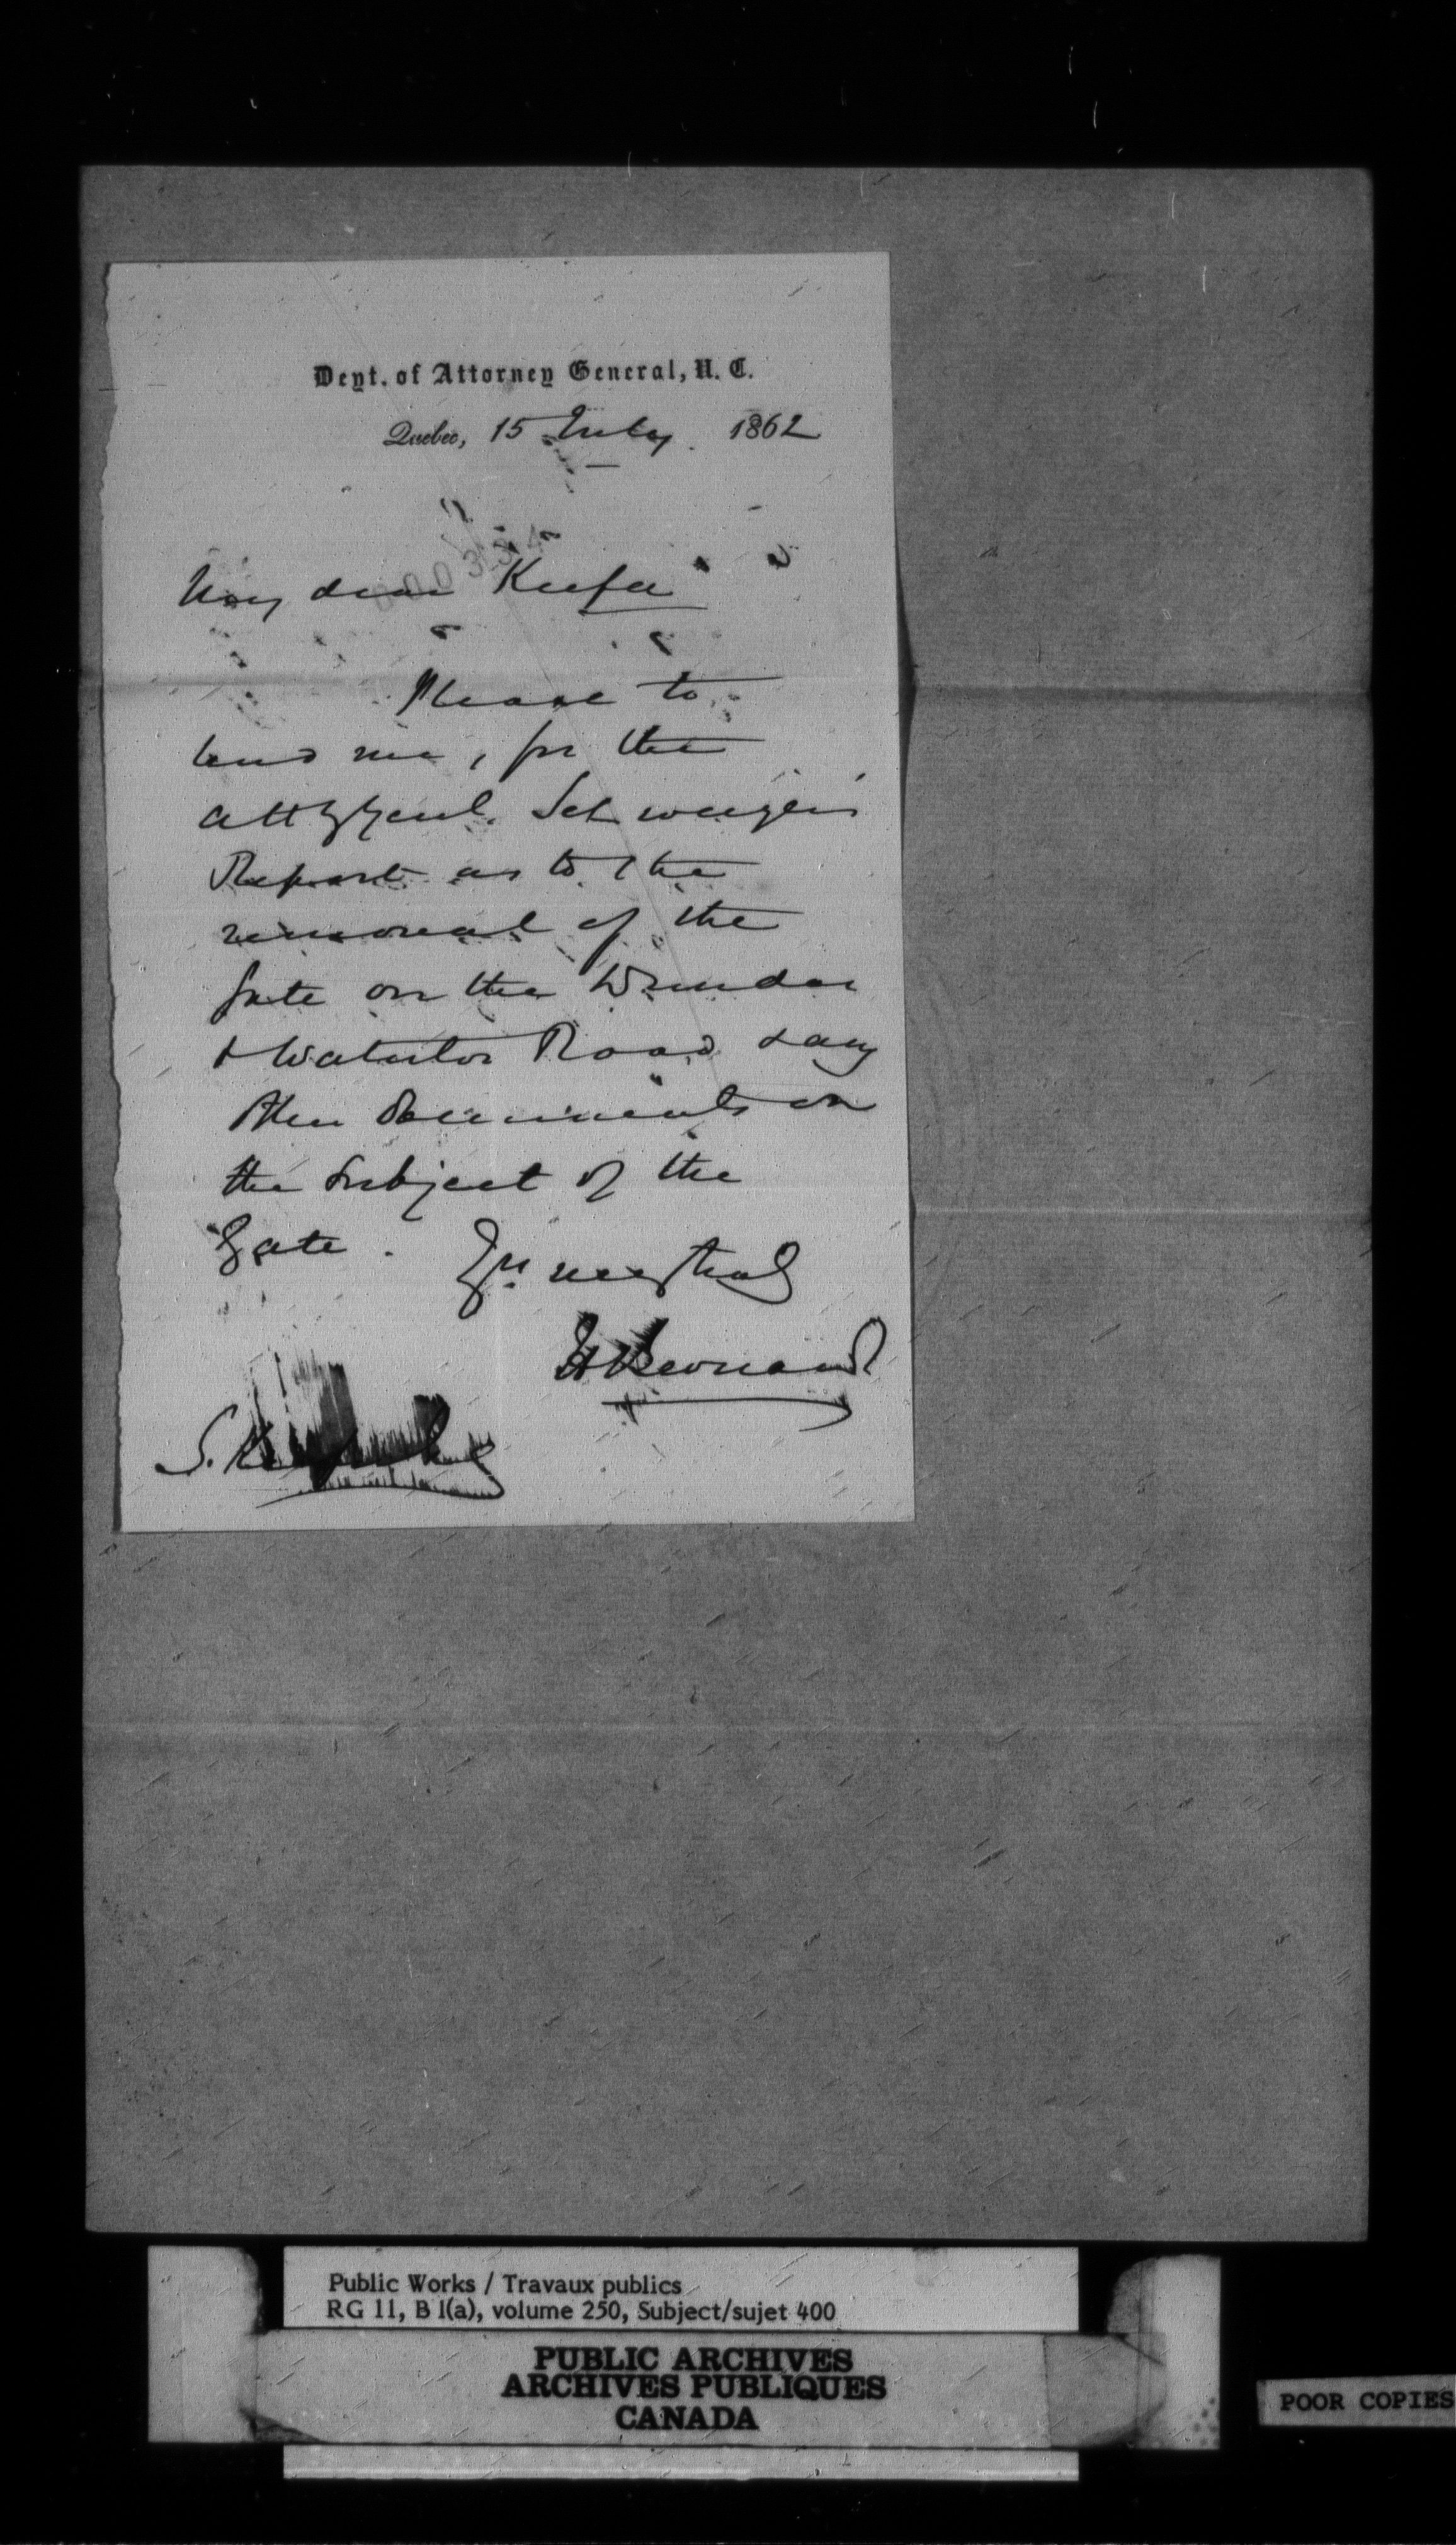 Dept. of Attorney General, U. C.
Quebec, 15 July. 1862
My dear Keefer
Please to
send me, for the
Atty Genl.
Report as to the
removal of the
gate on the Dundas
& Waterloo Road & any
other documents on
the subject of the
Gate. Yrs
H Bernard
S. Keefer
Public Works / Travaux publics
RG 11, B 1(a), volume 250, Subject/sujet 400
PUBLIC ARCHIVES
ARCHIVES PUBLIQUES
CANADA
POOR COPIES